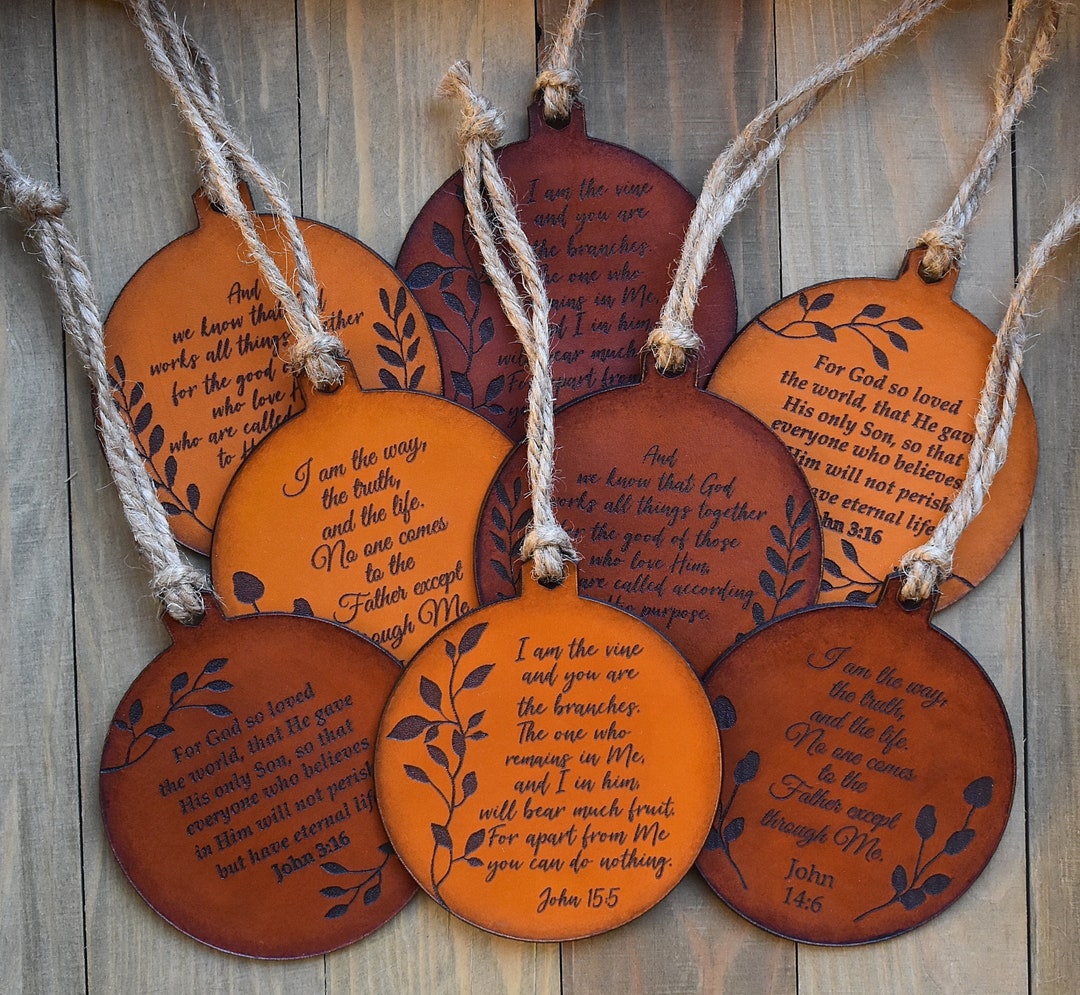 I am the vine
and you are
the branches.
The one who
remains in Me,
I in him,
bear much
apart from
And
we know that
works all things together
for the good
who love
who are called
to
For God so loved
the world, that He gave
His only Son, so that
everyone who believes
Him will not perish
have eternal life
3:16
I am the way,
the truth,
and the life.
No one comes
to the
Father except
through Me.
And
we know that God
works all things together
for the good of those
who love Him,
are called according
purpose.
For God so loved
the world, that He gave
His only Son, so that
everyone who believes
in Him will not perish
but have eternal life
John 3:16
I am the vine
and you are
the branches.
The one who
remains in Me,
and I in him,
will bear much fruit.
For apart from Me
you can do nothing.
John 15:5
I am the way,
the truth,
and the life.
No one comes
to the
Father except
through Me.
John
14:6